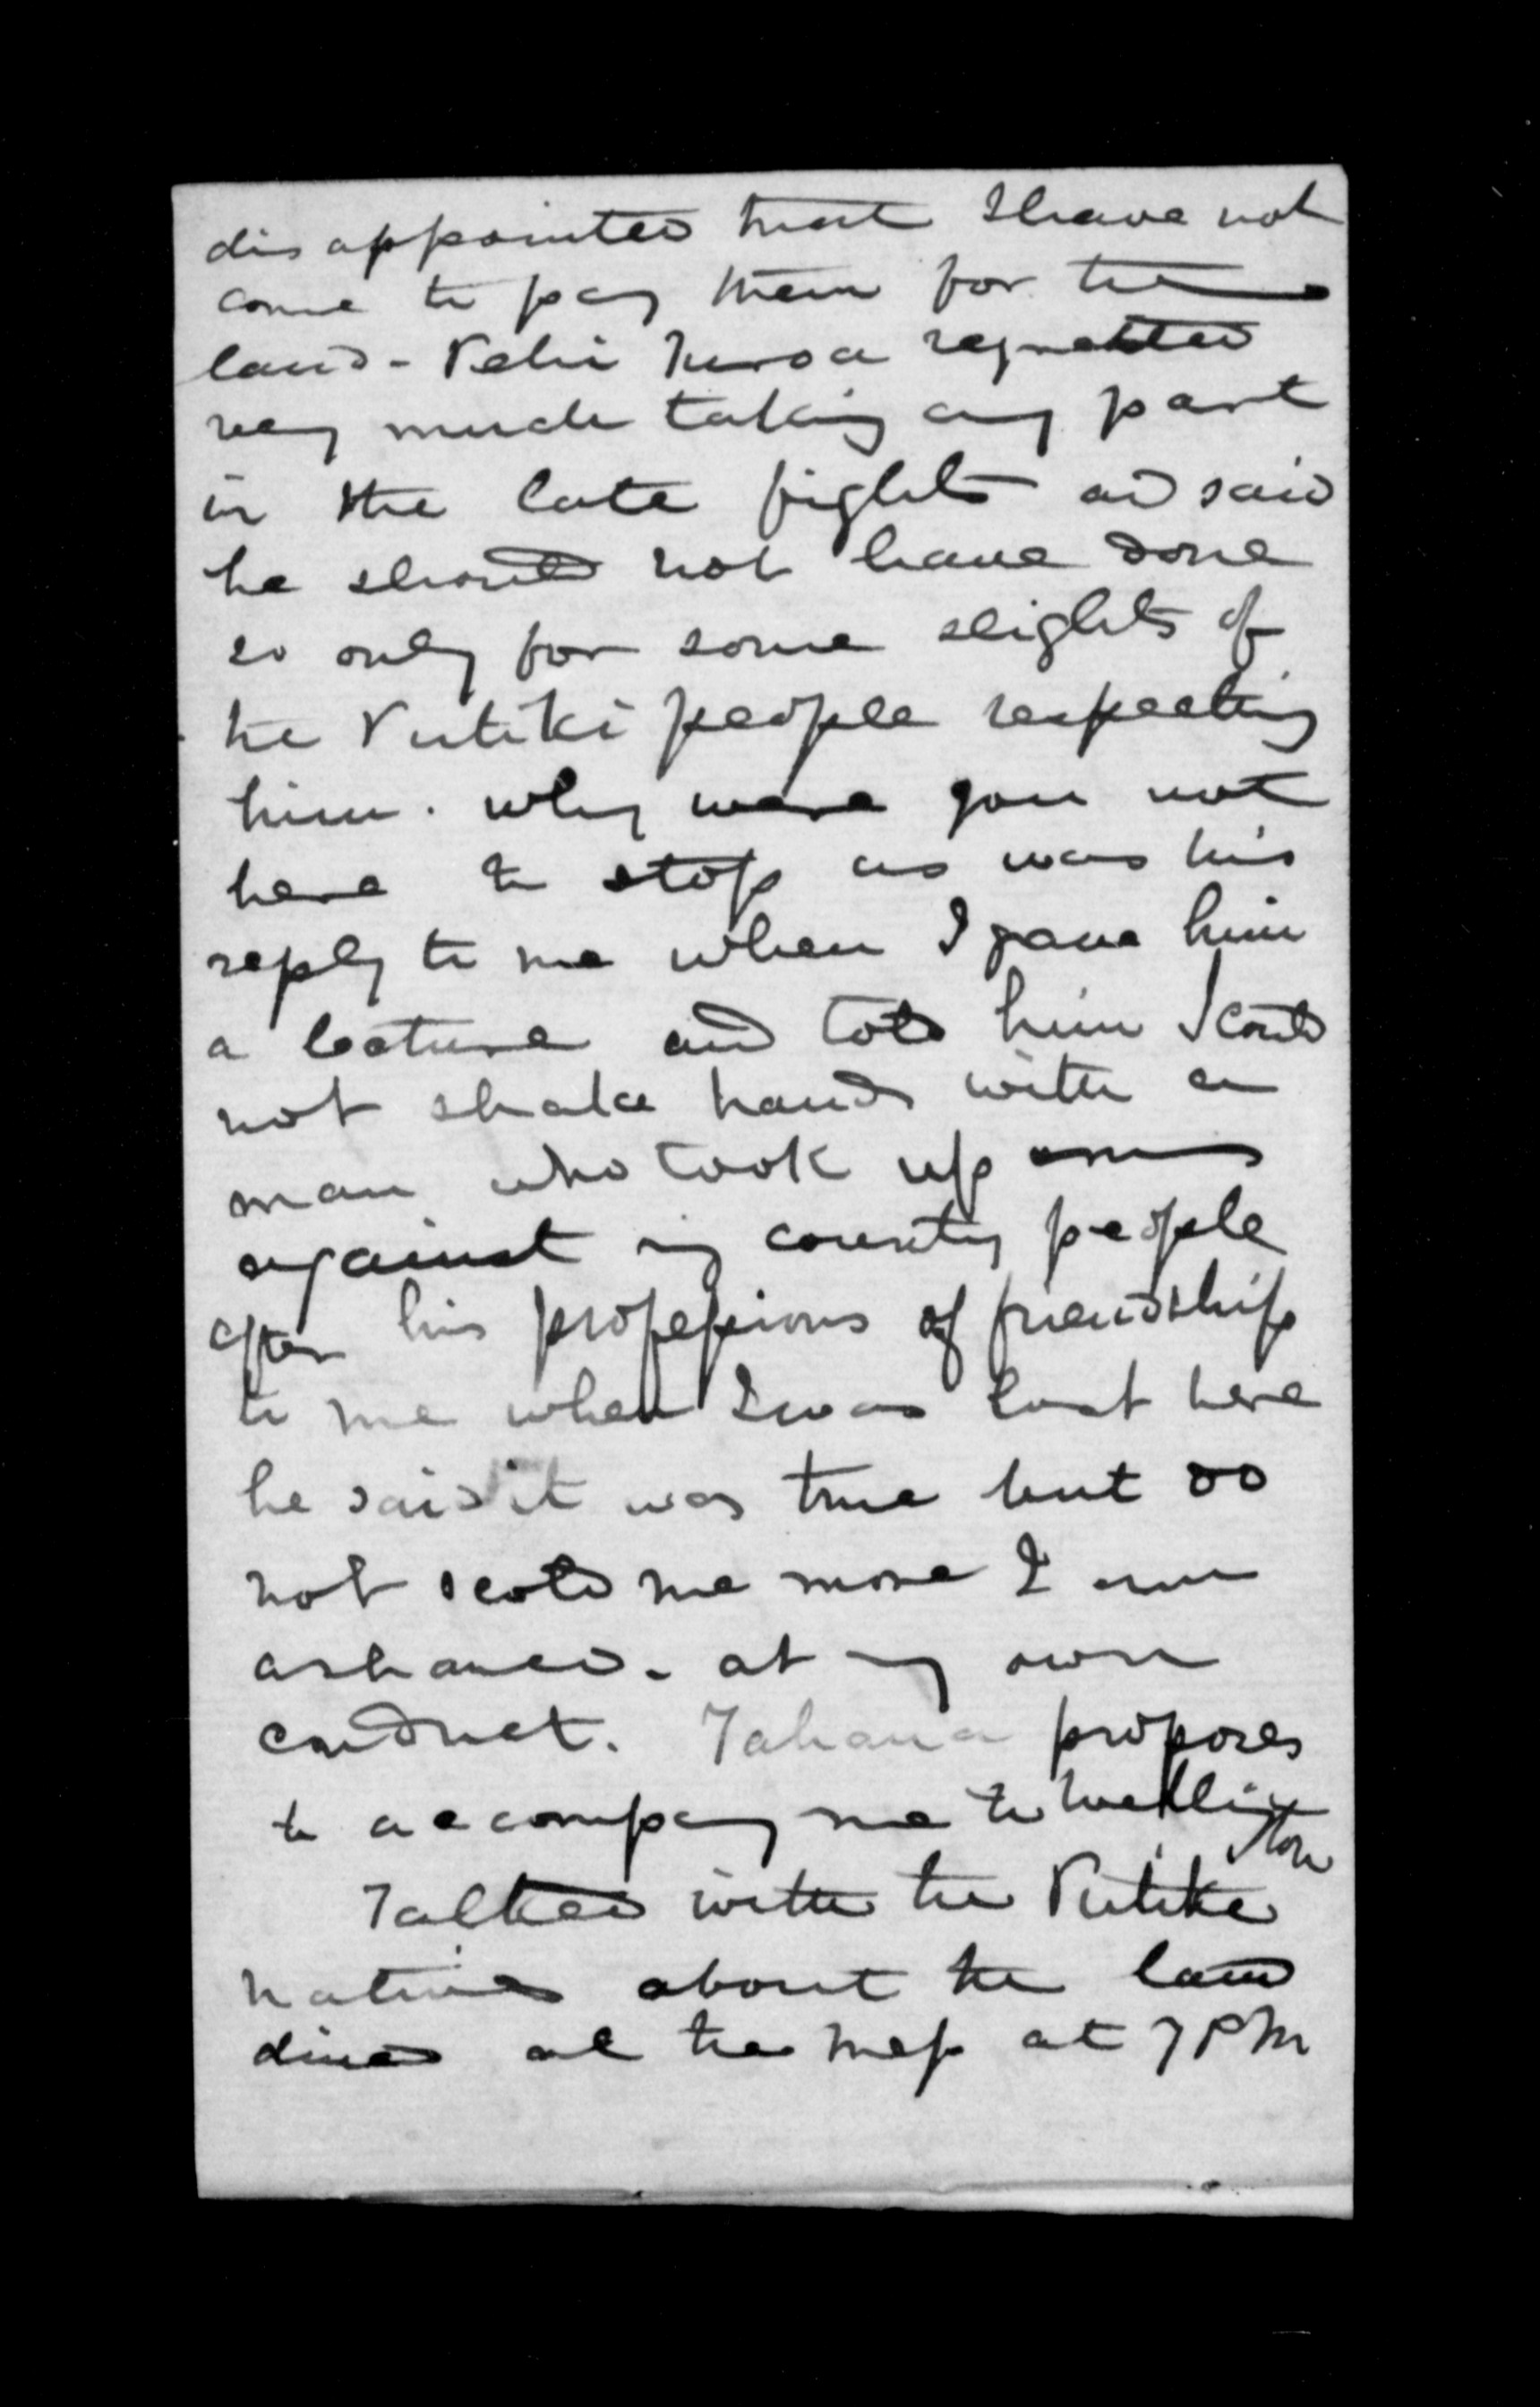 disappointed that I have not
come to pay them for the
land - Pehi Turoa regretted
very much taking any part
in the late fights and said
he should not have done
so only for some slights of
the Putiki people respecting
him. why were you not
here to stop us was his
reply to me when I gave him
a lecture and told him I could
not shake hands with a
man who took up arms
against my country people
after his professions of friendship
to me when I was last here
he said it was true but do
not scold me more I am
ashamed - at my own
conduct. Tahana proposes
to accompany me to Wellington
Talked with the Putiki
natives about the land
dined at the mess at 7 PM